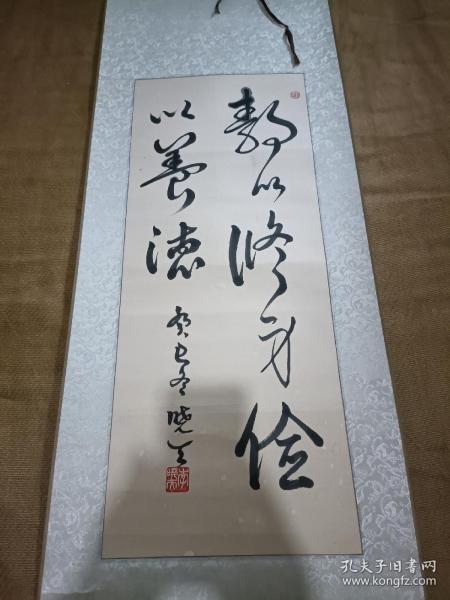 静以修身俭
以养德
癸巳冬晓天
孔夫子旧书网
www.kongfz.com